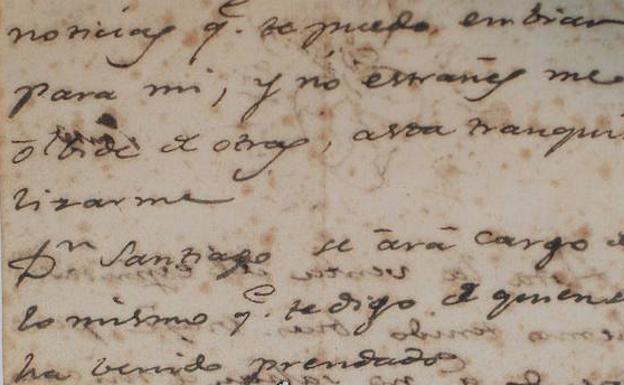 noticias q.e te puedo embiar
para mi, y no estrañes me
ōlbide de otras, asta tranqui
lizarme
Dn Santiago se ārā cargo d
lo mismo q.e te digo de quien
ha venido prendado